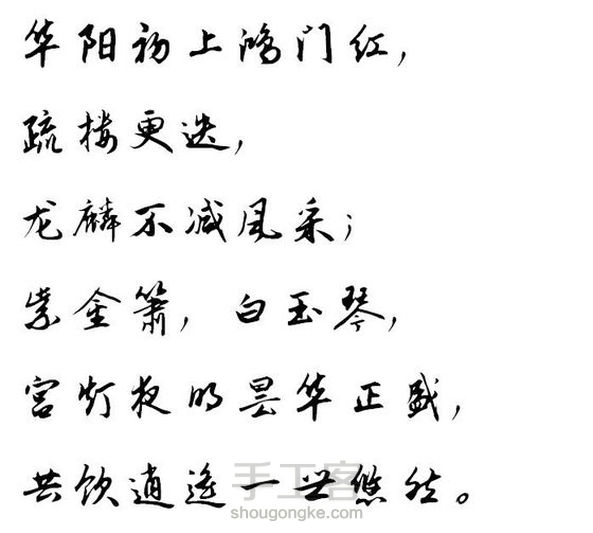 华阳初上鸿门红，
疏楼更迭，
龙麟不减风采；
紫金箫，白玉琴，
宫灯夜明昙华正盛，
共饮逍遥一世悠然。
手工客
shougongke.com